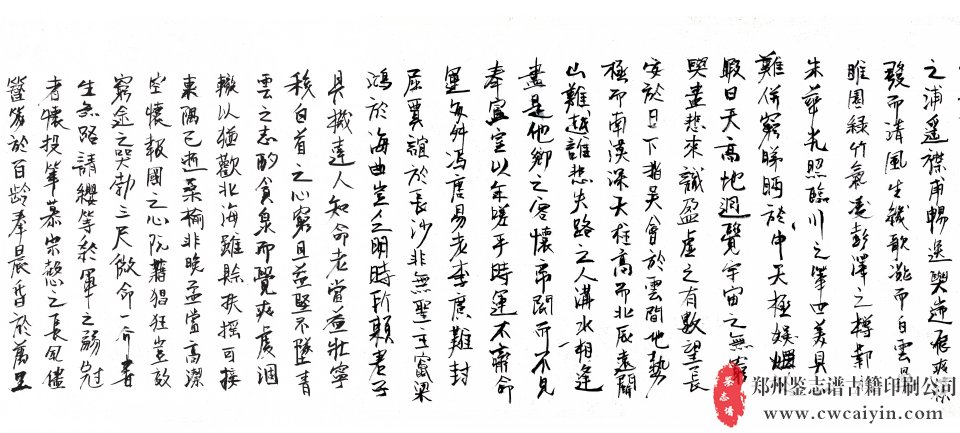 之浦遥襟甫暢逸興遄飛爽
發而清風生纖歌凝而白雲
睢園綠竹氣凌彭澤之樽鄴
朱華光照臨川之筆四美具
難併窮睇眄於中天極娛
暇日天高地迥覺宇宙之無窮
興盡悲來識盈虛之有數望長
安於日下指吳會於雲間地勢
極而南溟深天柱高而北辰遠關
山難越誰悲失路之人溝水相逢
盡是他鄉之客懷帝閽而不見
奉宣室以年嗟乎時運不齊命
運多舛馮唐易老李廣難封
屈賈誼於長沙非無聖主竄梁
鴻於海曲豈乏明時所賴君子
見機達人知命老當益壯寧
移白首之心窮且益堅不墜青
雲之志酌貪泉而覺爽處涸
轍以猶歡北海雖賒扶搖可接
東隅已逝桑榆非晚孟嘗高潔
空懷報國之心阮籍猖狂豈效
窮途之哭勃三尺微命一介書
生無路請纓等終軍之弱冠
有懷投筆慕宗慤之長風
簪笏於百齡奉晨昏於萬里
鉴志谱
郑州鉴志谱古籍印刷公司
www.cwcaiyin.com